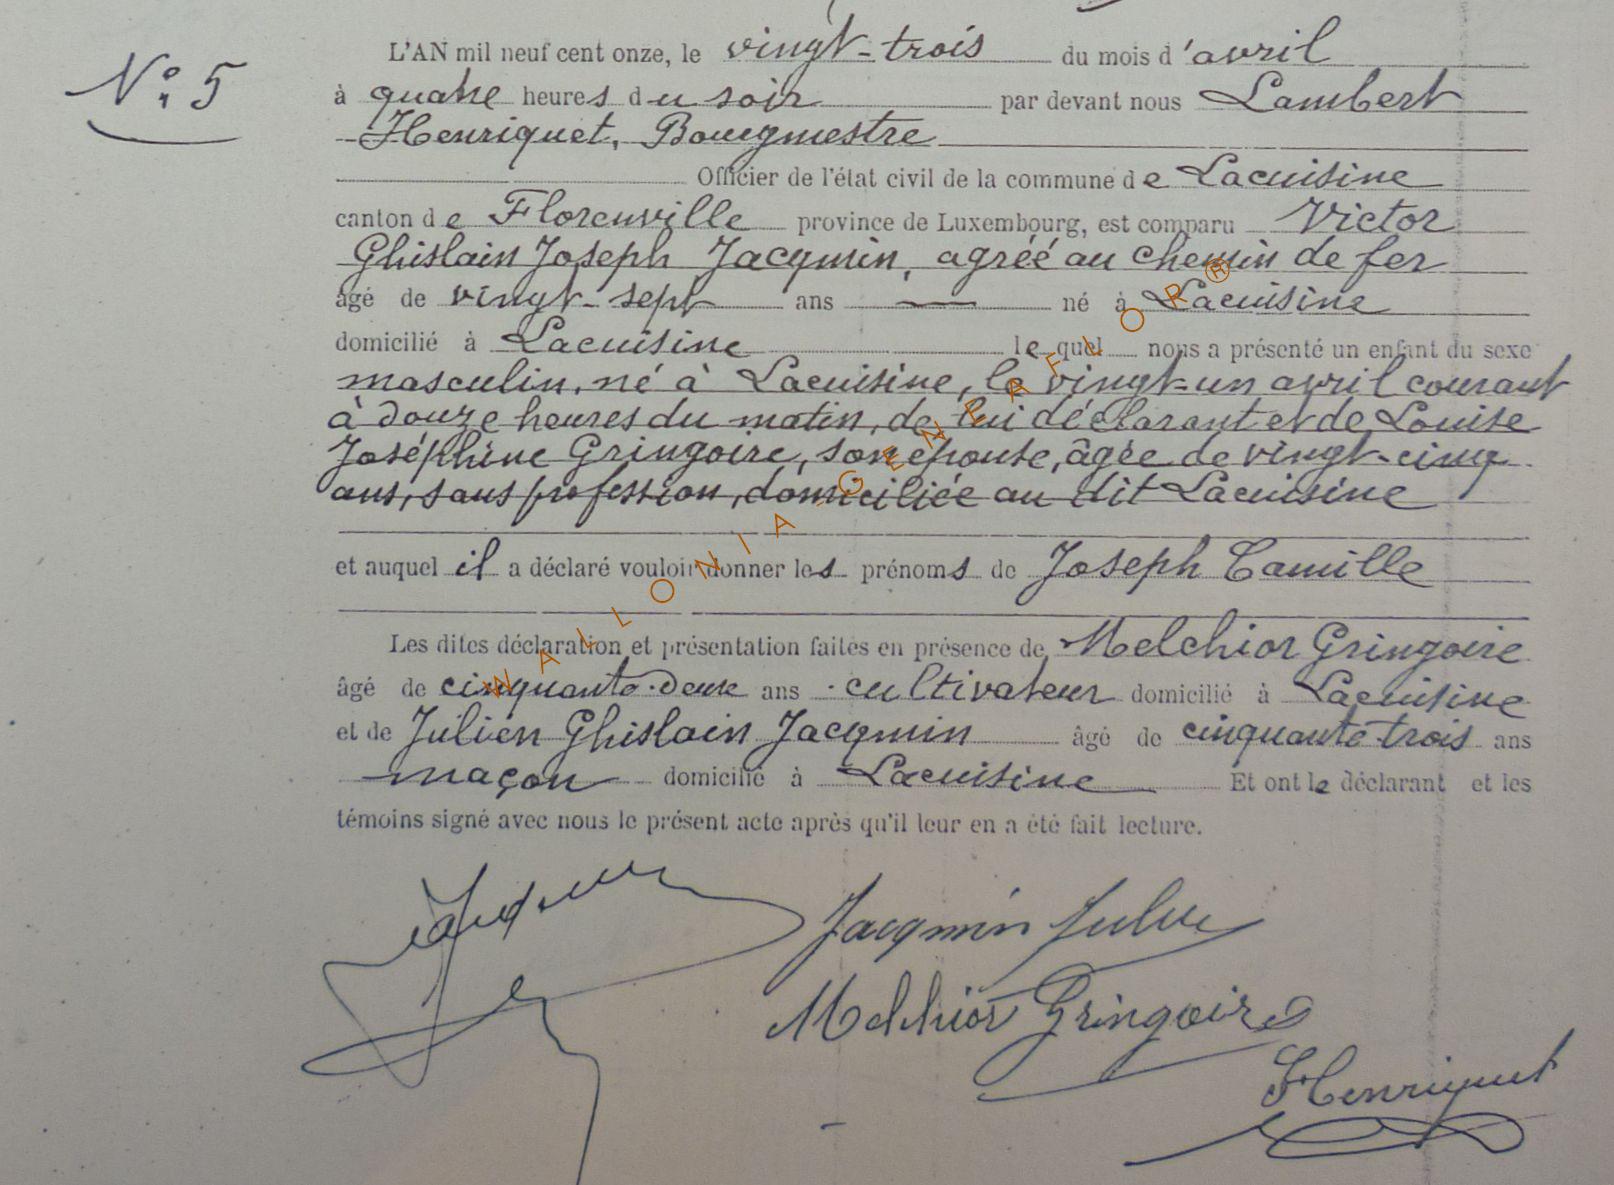 N° 5
L'AN mil neuf cent onze, le vingt-trois du mois d'avril
à quatre heures du soir par devant nous Lambert
Henriquet, Bourgmestre
Officier de l'état civil de la commune de Lacuisine
canton de Florenville province de Luxembourg, est comparu Victor
Ghislain Joseph Jacqmin, agréé au chemin de fer
âgé de vingt-sept ans né à Lacuisine
domicilié à Lacuisine lequel nous a présenté un enfant du sexe
masculin, né à Lacuisine, le vingt-un avril courant
à douze heures du matin, de lui déclarant et de Louise
Joséphine Gringoire, son épouse, âgée de vingt-cinq
ans, sans profession, domiciliée au dit Lacuisine
et auquel il a déclaré vouloir donner les prénoms de Joseph Camille
Les dites déclaration et présentation faites en présence de Melchior Gringoire
âgé de cinquante-deux ans cultivateur domicilié à Lacuisine
et de Julien Ghislain Jacqmin âgé de cinquante-trois ans
maçon domicilié à Lacuisine Et ont le déclarant et les
témoins signé avec nous le présent acte après qu'il leur en a été fait lecture.
Jacqmin Julien
Melchior Gringoire
Henriquet
WALLONIA-GENEAFLOR®